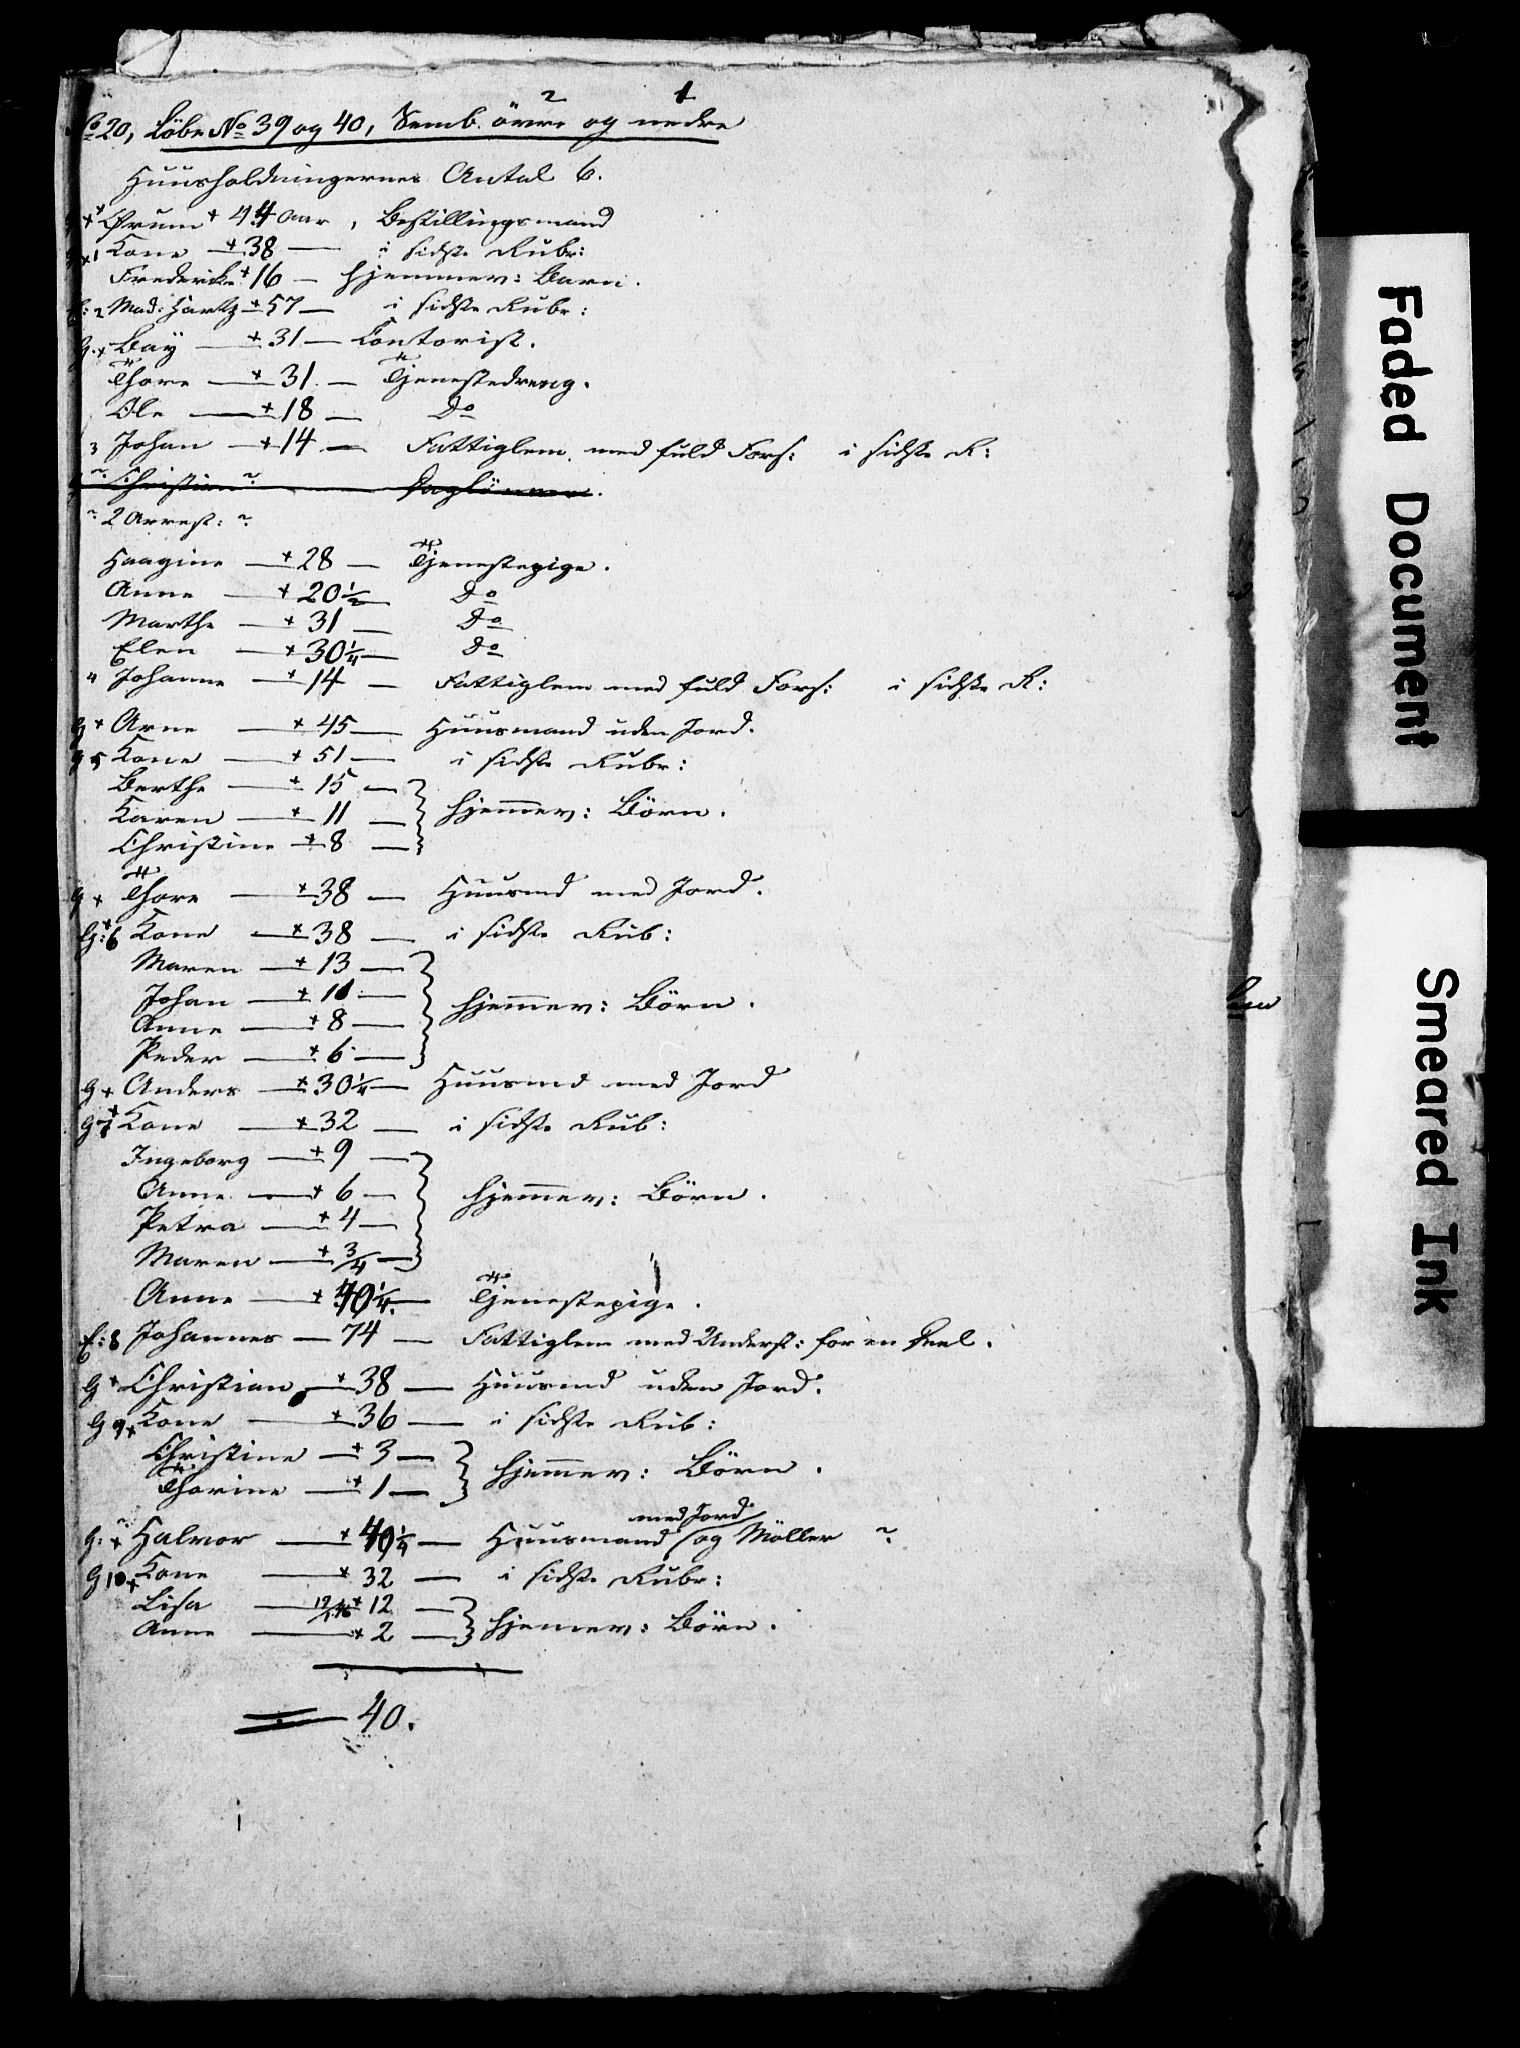 No 20, Löbe No 39 og 40, Semb övre 2 og nedre 1
Huusholdningernes Antal 6.
Ørum + 44 Aar, Bestillingsmand
1 Kone + 38 — i sidste Rubr:
Frederikke + 16 — hjemmev: Barn.
E: 2 Mad: Hartz + 57 — i sidste Rubr:
g. + Bay — + 31 — Contorist.
Thore — + 31 — Tjenestedreng.
Ole — + 18 — Do
3 Johan — + 14 — Fattiglem med fuld Fors: i sidste R:
Christian — Daglönner.
2 Arrest:
Haagine — + 28 — Tjenestepige.
Anne — + 20 1/2 — Do
Marthe — + 31 — Do
Elen — + 30 1/4 — Do
4 Johanne — + 14 — Fattiglem med fuld Fors: i sidste R:
g + Arne — + 45 — Huusmand uden Jord.
g 5 Kone — + 51 — i sidste Rubr:
Berthe — + 15 —
Karen — + 11 — hjemmev: Börn.
Christine + 8 —
g + Thore — + 38 — Huusmd med Jord.
g: 6 + Kone — + 38 — i sidste Rub:
Maren — + 13 —
Johan — + 11 — hjemmev: Börn.
Anne — + 8 —
Peder — + 6 —
g + Anders — + 30 1/4 — Huusmd med Jord
g 7 + Kone — + 32 — i sidste Rub:
Ingeborg — + 9 —
Anne — + 6 — hjemmev: Börn.
Petra — + 4 —
Maren — + 3/4 —
Anne — + 40 1/4 — Tjenestepige.
E: 8 Johannes — 74 — Fattiglem med Underst: for en Deel.
g + Christian — + 38 — Huusmd uden Jord.
g 9 + Kone — + 36 — i sidste Rub:
Christine — + 3 — hjemmev: Börn.
Thorine — + 1 —
med Jord
g: + Halvor — + 40 1/4 — Huusmand og Möller
g 10 + Kone — + 32 — i sidste Rubr:
Lisa — + 12 — hjemev: Börn.
Anne — + 2 —
40.
Faded Document
Smeared Ink